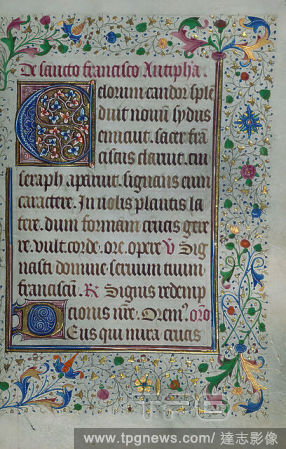 De sancto francisco Antipha
Celorum candor sple
duit novum sydus
emicuit. sacer frã
ciscus claruit. cui
seraph apparuit. signans eum
caractere. In volis plantis la
tere. dum formam crucis gere
re. vult corde. ore. opere V Sig
nasti domine servum tuum
franciscũ. R Signis redemp
cionis nr̃e. Orem⁹. oro
Deus qui mira crucis
www.tpgnews.com/ 達志影像